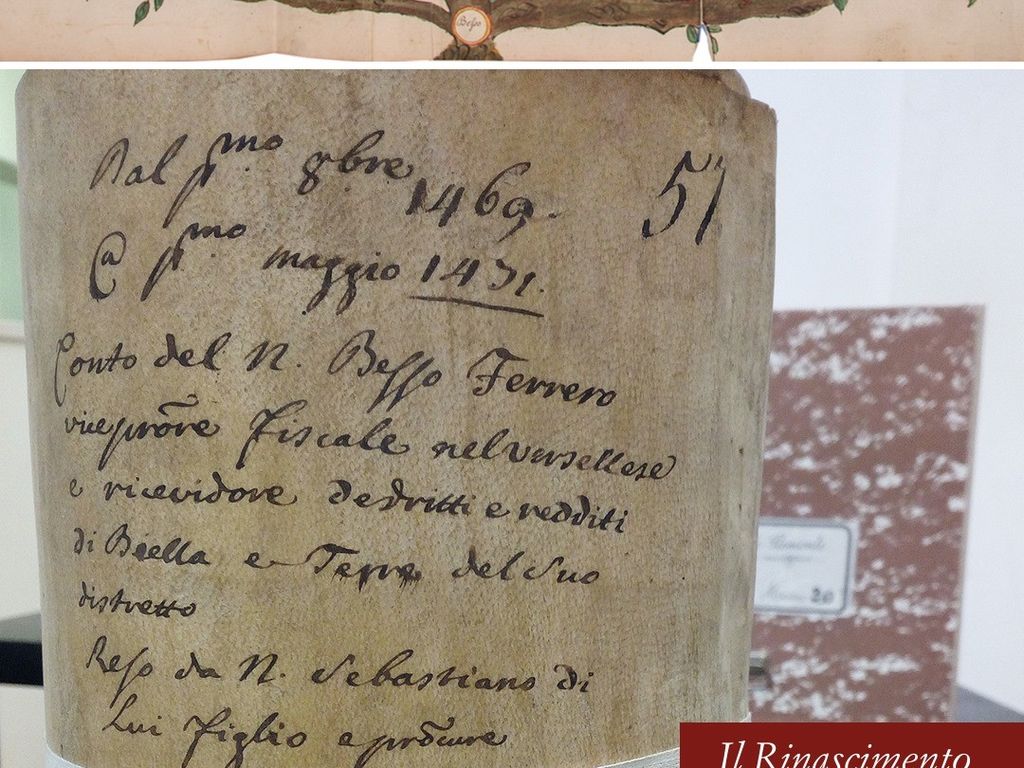 Besso
Dal p.mo 8bre
1469.
57
a p.mo maggio 1471.
Conto del N. Besso Ferrero
viceprōre fiscale nel versellese
e ricevidore dedritti e redditi
di Biella e Terre del suo
distretto
Reso da N. Sebastiano di
Lui figlio e procure
20
Il Rinascimento